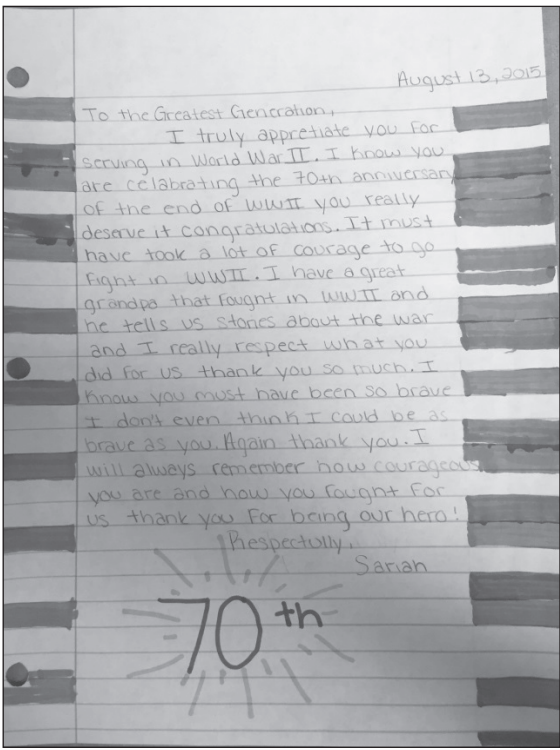 August 13, 2015
To the Greatest Generation,
I truly appretiate you for
serving in World War II. I know you
are celabrating the 70th anniversary
of the end of WWII you really
deserve it congratulations. It must
have took a lot of courage to go
fight in WWII. I have a great
grandpa that fought in WWII and
he tells us stories about the war
and I really respect what you
did for us thank you so much. I
know you must have been so brave
I don't even think I could be as
brave as you. Again thank you. I
will always remember how courageous
you are and how you fought for
us thank you for being our hero!
Respectully,
Sariah
70th